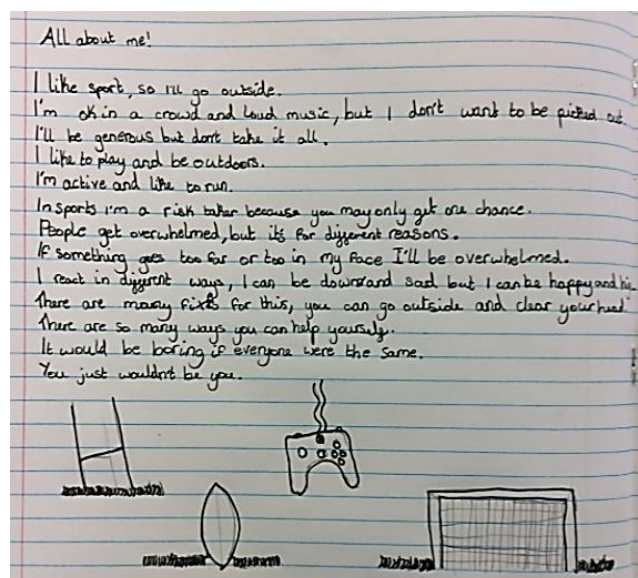 All about me!
I like sport, so I'll go outside.
I'm ok in a crowd and loud music, but I don't want to be picked out.
I'll be generous but don't take it all.
I like to play and be outdoors.
I'm active and like to run.
In sports I'm a risk taker because you may only get one chance.
People get overwhelmed, but it's for different reasons.
If something goes too far or too in my face I'll be overwhelmed.
I react in different ways, I can be down and sad but I can be happy and
There are many fixes for this, you can go outside and clear your head
There are so many ways you can help yourself.
It would be boring if everyone were the same.
You just wouldn't be you.